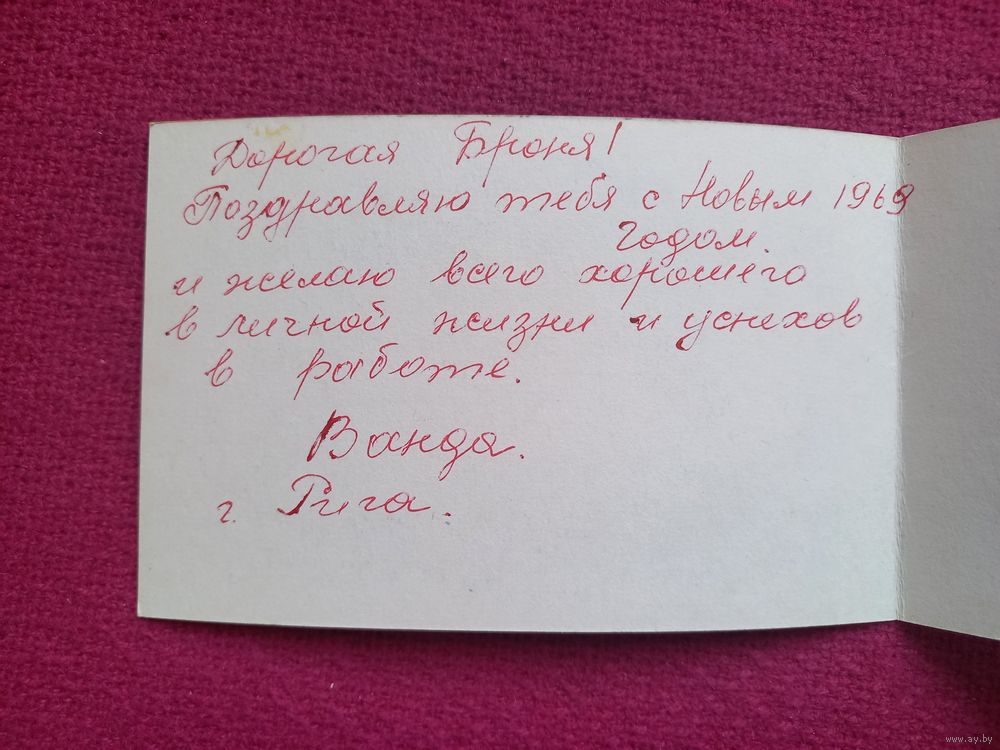 Дорогая Броня!
Поздравляю тебя с Новым 1969
годом.
и желаю всего хорошего
в личной жизни и успехов
в работе.
Ванда.
г. Рига.
www.ay.by